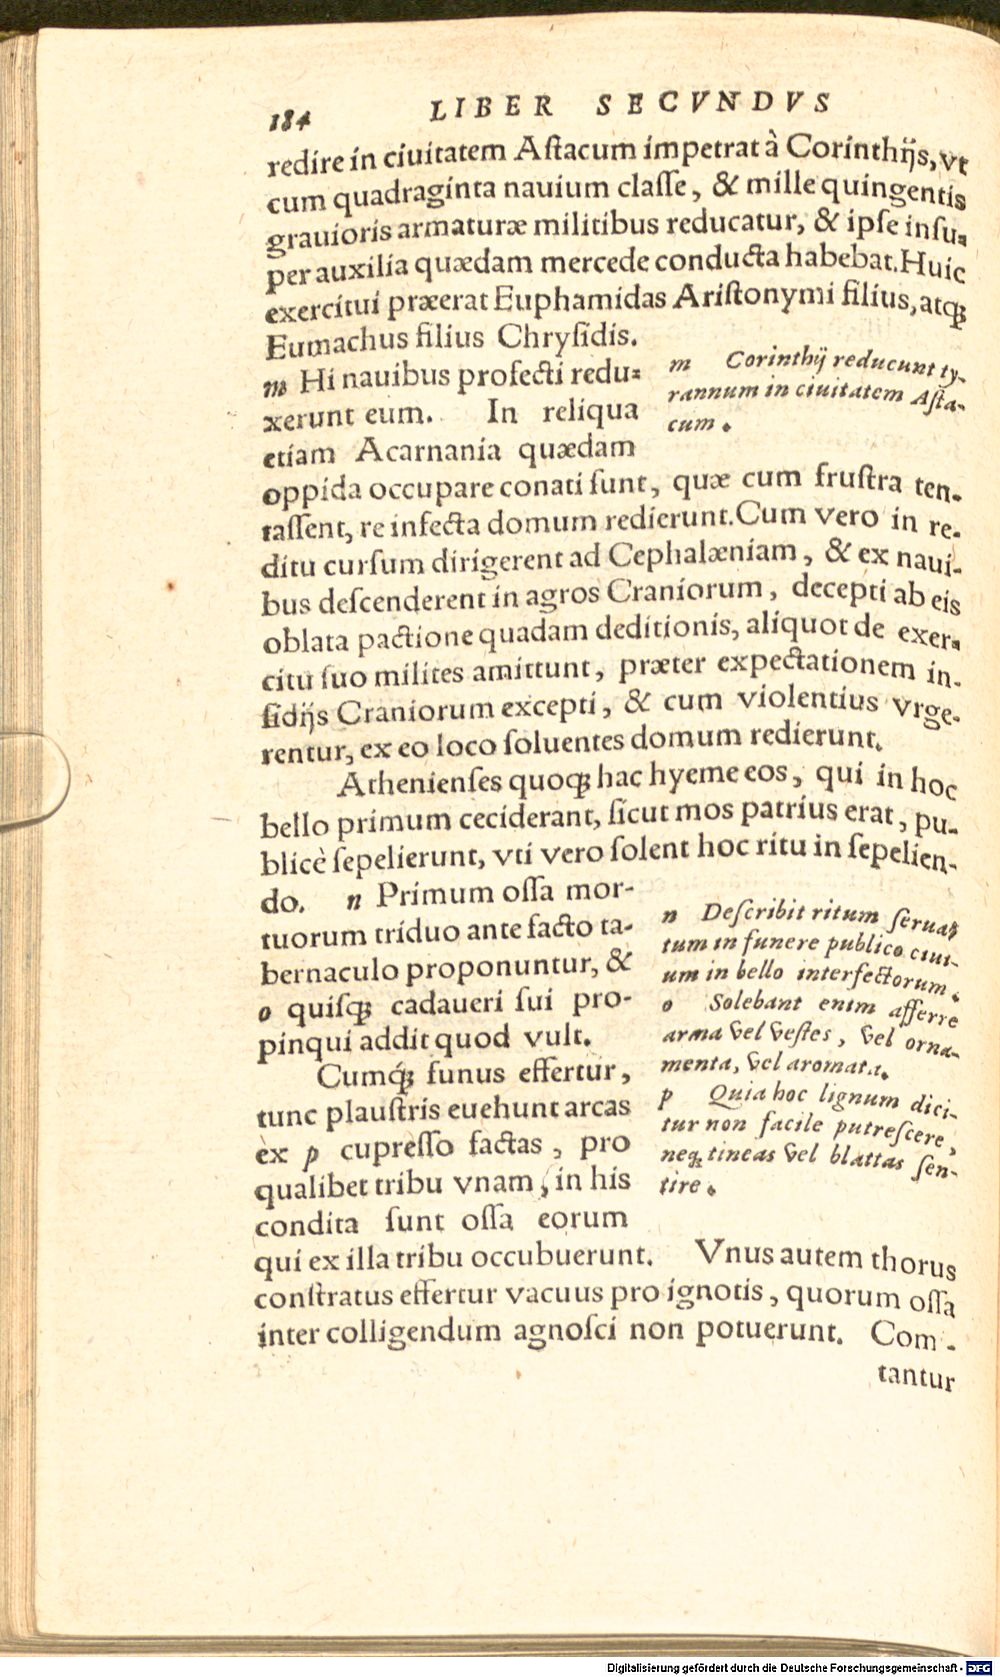 184 LIBER SECVNDVS
redire in ciuitatem Astacum impetrat à Corinthijs, vt
cum quadraginta nauium classe, & mille quingentis
grauioris armaturæ militibus reducatur, & ipse insu-
per auxilia quædam mercede conducta habebat. Huic
exercitui præerat Euphamidas Aristonymi filius, atq;
Eumachus filius Chrysidis.
m Hi nauibus profecti redu-
xerunt eum. In reliqua
etiam Acarnania quædam
m Corinthij reducunt ty-
rannum in ciuitatem Asta-
cum.
oppida occupare conati sunt, quæ cum frustra ten-
tassent, re infecta domum redierunt. Cum vero in re-
ditu cursum dirigerent ad Cephalæniam, & ex naui-
bus descenderent in agros Craniorum, decepti ab eis
oblata pactione quadam deditionis, aliquot de exer-
citu suo milites amittunt, præter expectationem in-
sidijs Craniorum excepti, & cum violentius vrge-
rentur, ex eo loco soluentes domum redierunt.
Athenienses quoq; hac hyeme eos, qui in hoc
bello primum ceciderant, sicut mos patrius erat, pu-
blicè sepelierunt, vti vero solent hoc ritu in sepelien-
do. n Primum ossa mor-
tuorum triduo ante facto ta-
bernaculo proponuntur, &
o quisq; cadaueri sui pro-
pinqui addit quod vult.
Cumq́; funus effertur,
tunc plaustris euehunt arcas
ex p cupresso factas, pro
qualibet tribu vnam, in his
condita sunt ossa eorum
n Describit ritum serua-
tum in funere publico ciui-
um in bello interfectorum.
o Solebant enim afferre
arma vel vestes, vel orna-
menta, vel aromata.
p Quia hoc lignum dici-
tur non facile putrescere,
neq; tineas vel blattas sen-
tire.
qui ex illa tribu occubuerunt. Vnus autem thorus
constratus effertur vacuus pro ignotis, quorum ossa
inter colligendum agnosci non potuerunt. Com-
tantur
Digitalisierung gefördert durch die Deutsche Forschungsgemeinschaft - DFG